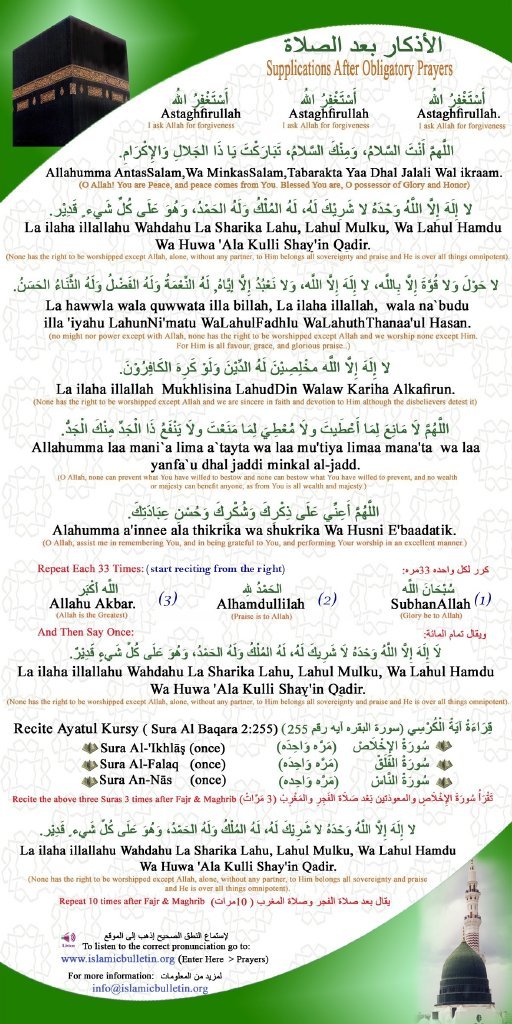 الأذكار بعد الصلاة
Supplications After Obligatory Prayers
أَسْتَغْفِرُ الله أَسْتَغْفِرُ الله أَسْتَغْفِرُ الله
Astaghfirullah Astaghfirullah Astaghfirullah.
I ask Allah for forgiveness I ask Allah for forgiveness I ask Allah for forgiveness
اللَّهمَّ أَنْتَ السَّلامُ، وَمِنْكَ السَّلامُ، تَبَارَكْتَ يَا ذَا الجَلالِ وَالإِكْرَامِ.
Allahumma AntasSalam,Wa MinkasSalam,Tabarakta Yaa Dhal Jalali Wal ikraam.
(O Allah! You are Peace, and peace comes from You. Blessed You are, O possessor of Glory and Honor)
لا إِلَهَ إِلَّا اللَّهُ وَحْدَهُ لا شَرِيْكَ لَهُ، لَهُ المُلْكُ وَلَهُ الحَمْدُ، وَهُوَ عَلَى كُلِّ شَيءٍ قَدِيْر.
La ilaha illallahu Wahdahu La Sharika Lahu, Lahul Mulku, Wa Lahul Hamdu
Wa Huwa 'Ala Kulli Shay'in Qadir.
(None has the right to be worshipped except Allah, alone, without any partner, to Him belongs all sovereignty and praise and He is over all things omnipotent).
لا حَوْلَ وَلا قُوَّةَ إِلَّا بِاللَّه، لا إِلَهَ إِلَّا اللَّه، وَلا نَعْبُدُ إِلَّا إِيَّاهُ، لَهُ النِّعْمَةُ وَلَهُ الفَضْلُ وَلَهُ الثَّنَاءُ الحَسَنُ.
La hawwla wala quwwata illa billah, La ilaha illallah, wala na`budu
illa 'iyahu LahunNi'matu WaLahulFadhlu WaLahuthThanaa'ul Hasan.
(no might nor power except with Allah, none has the right to be worshipped except Allah and we worship none except Him.
For Him is all favour, grace, and glorious praise..)
لا إِلَهَ إِلَّا اللَّه مخلِصِيْنَ لَهُ الدِّيْنَ وَلَوْ كَرِهَ الكَافِرُوْنَ.
La ilaha illallah Mukhlisina LahudDin Walaw Kariha Alkafirun.
(None has the right to be worshipped except Allah and we are sincere in faith and devotion to Him although the disbelievers detest it)
اللَّهُمَّ لا مَانِعَ لِمَا أَعْطَيتَ وَلا مُعْطِيَ لِمَا مَنَعْتَ وَلا يَنْفَعُ ذَا الْجَدِّ مِنْكَ الْجَدُّ.
Allahumma laa mani`a lima a`tayta wa laa mu'tiya limaa mana'ta wa laa
yanfa`u dhal jaddi minkal al-jadd.
(O Allah, none can prevent what You have willed to bestow and none can bestow what You have willed to prevent, and no wealth
or majesty can benefit anyone, as from You is all wealth and majesty )
اللَّهُمَّ أَعِنِّي عَلَى ذِكْرِكَ وَشُكْرِكَ وَحُسْنِ عِبَادَتِكَ.
Alahumma a'innee ala thikrika wa shukrika Wa Husni E'baadatik.
(O Allah, assist me in remembering You, and in being grateful to You, and performing Your worship in an excellent manner.)
Repeat Each 33 Times: (start reciting from the right) كرر لكل واحده 33مره:
اللَّه أَكْبَر الْحَمْدُ لله سُبْحَانَ اللَّه
Allahu Akbar. (3) Alhamdullilah (2) SubhanAllah (1)
(Allah is the Greatest) (Praise is to Allah) (Glory be to Allah)
And Then Say Once: ويقال تمام المائة:
لا إِلَهَ إِلَّا اللَّهُ وَحْدَهُ لا شَرِيْكَ لَهُ، لَهُ المُلْكُ وَلَهُ الحَمْدُ، وَهُوَ عَلَى كُلِّ شَيءٍ قَدِيْرٌ.
La ilaha illallahu Wahdahu La Sharika Lahu, Lahul Mulku, Wa Lahul Hamdu
Wa Huwa 'Ala Kulli Shay'in Qadir.
(None has the right to be worshipped except Allah, alone, without any partner, to Him belongs all sovereignty and praise and He is over all things omnipotent).
Recite Ayatul Kursy ( Sura Al Baqara 2:255) قِرَاءَةُ آيَةُ الْكُرْسِي (سورة البقره آيه رقم 255)
Sura Al-'Ikhlāṣ (once) سُوْرَةُ الإِخْلَاصِ (مَرَّه وَاحِدَه)
Sura Al-Falaq (once) سُوْرَةُ الْفَلَقِ (مَرَّه وَاحِدَه)
Sura An-Nās (once) سُوْرَةُ النَّاسْ (مَرَّه وَاحِدَه)
Recite the above three Suras 3 times after Fajr & Maghrib تُقْرَأْ سُورَةُ الإِخْلاصِ والمعوذتين بَعْد صَلَاة الفَجرِ والْمَغْرِبْ (3 مَرَاتْ)
لا إِلَهَ إِلَّا اللَّهُ وَحْدَهُ لا شَرِيْكَ لَهُ، لَهُ المُلْكُ وَلَهُ الحَمْدُ، وَهُوَ عَلَى كُلِّ شَيءٍ قَدِيْر.
La ilaha illallahu Wahdahu La Sharika Lahu, Lahul Mulku, Wa Lahul Hamdu
Wa Huwa 'Ala Kulli Shay'in Qadir.
(None has the right to be worshipped except Allah, alone, without any partner, to Him belongs all sovereignty and praise
and He is over all things omnipotent).
Repeat 10 times after Fajr & Maghrib يقال بعد صلاة الفجر وصلاة المغرب (10مرات)
لإستماع النطق الصحيح إذهب إلى الموقع
Listen To listen to the correct pronunciation go to:
www.islamicbulletin.org (Enter Here > Prayers)
For more information: لمزيد من المعلومات
info@islamicbulletin.org